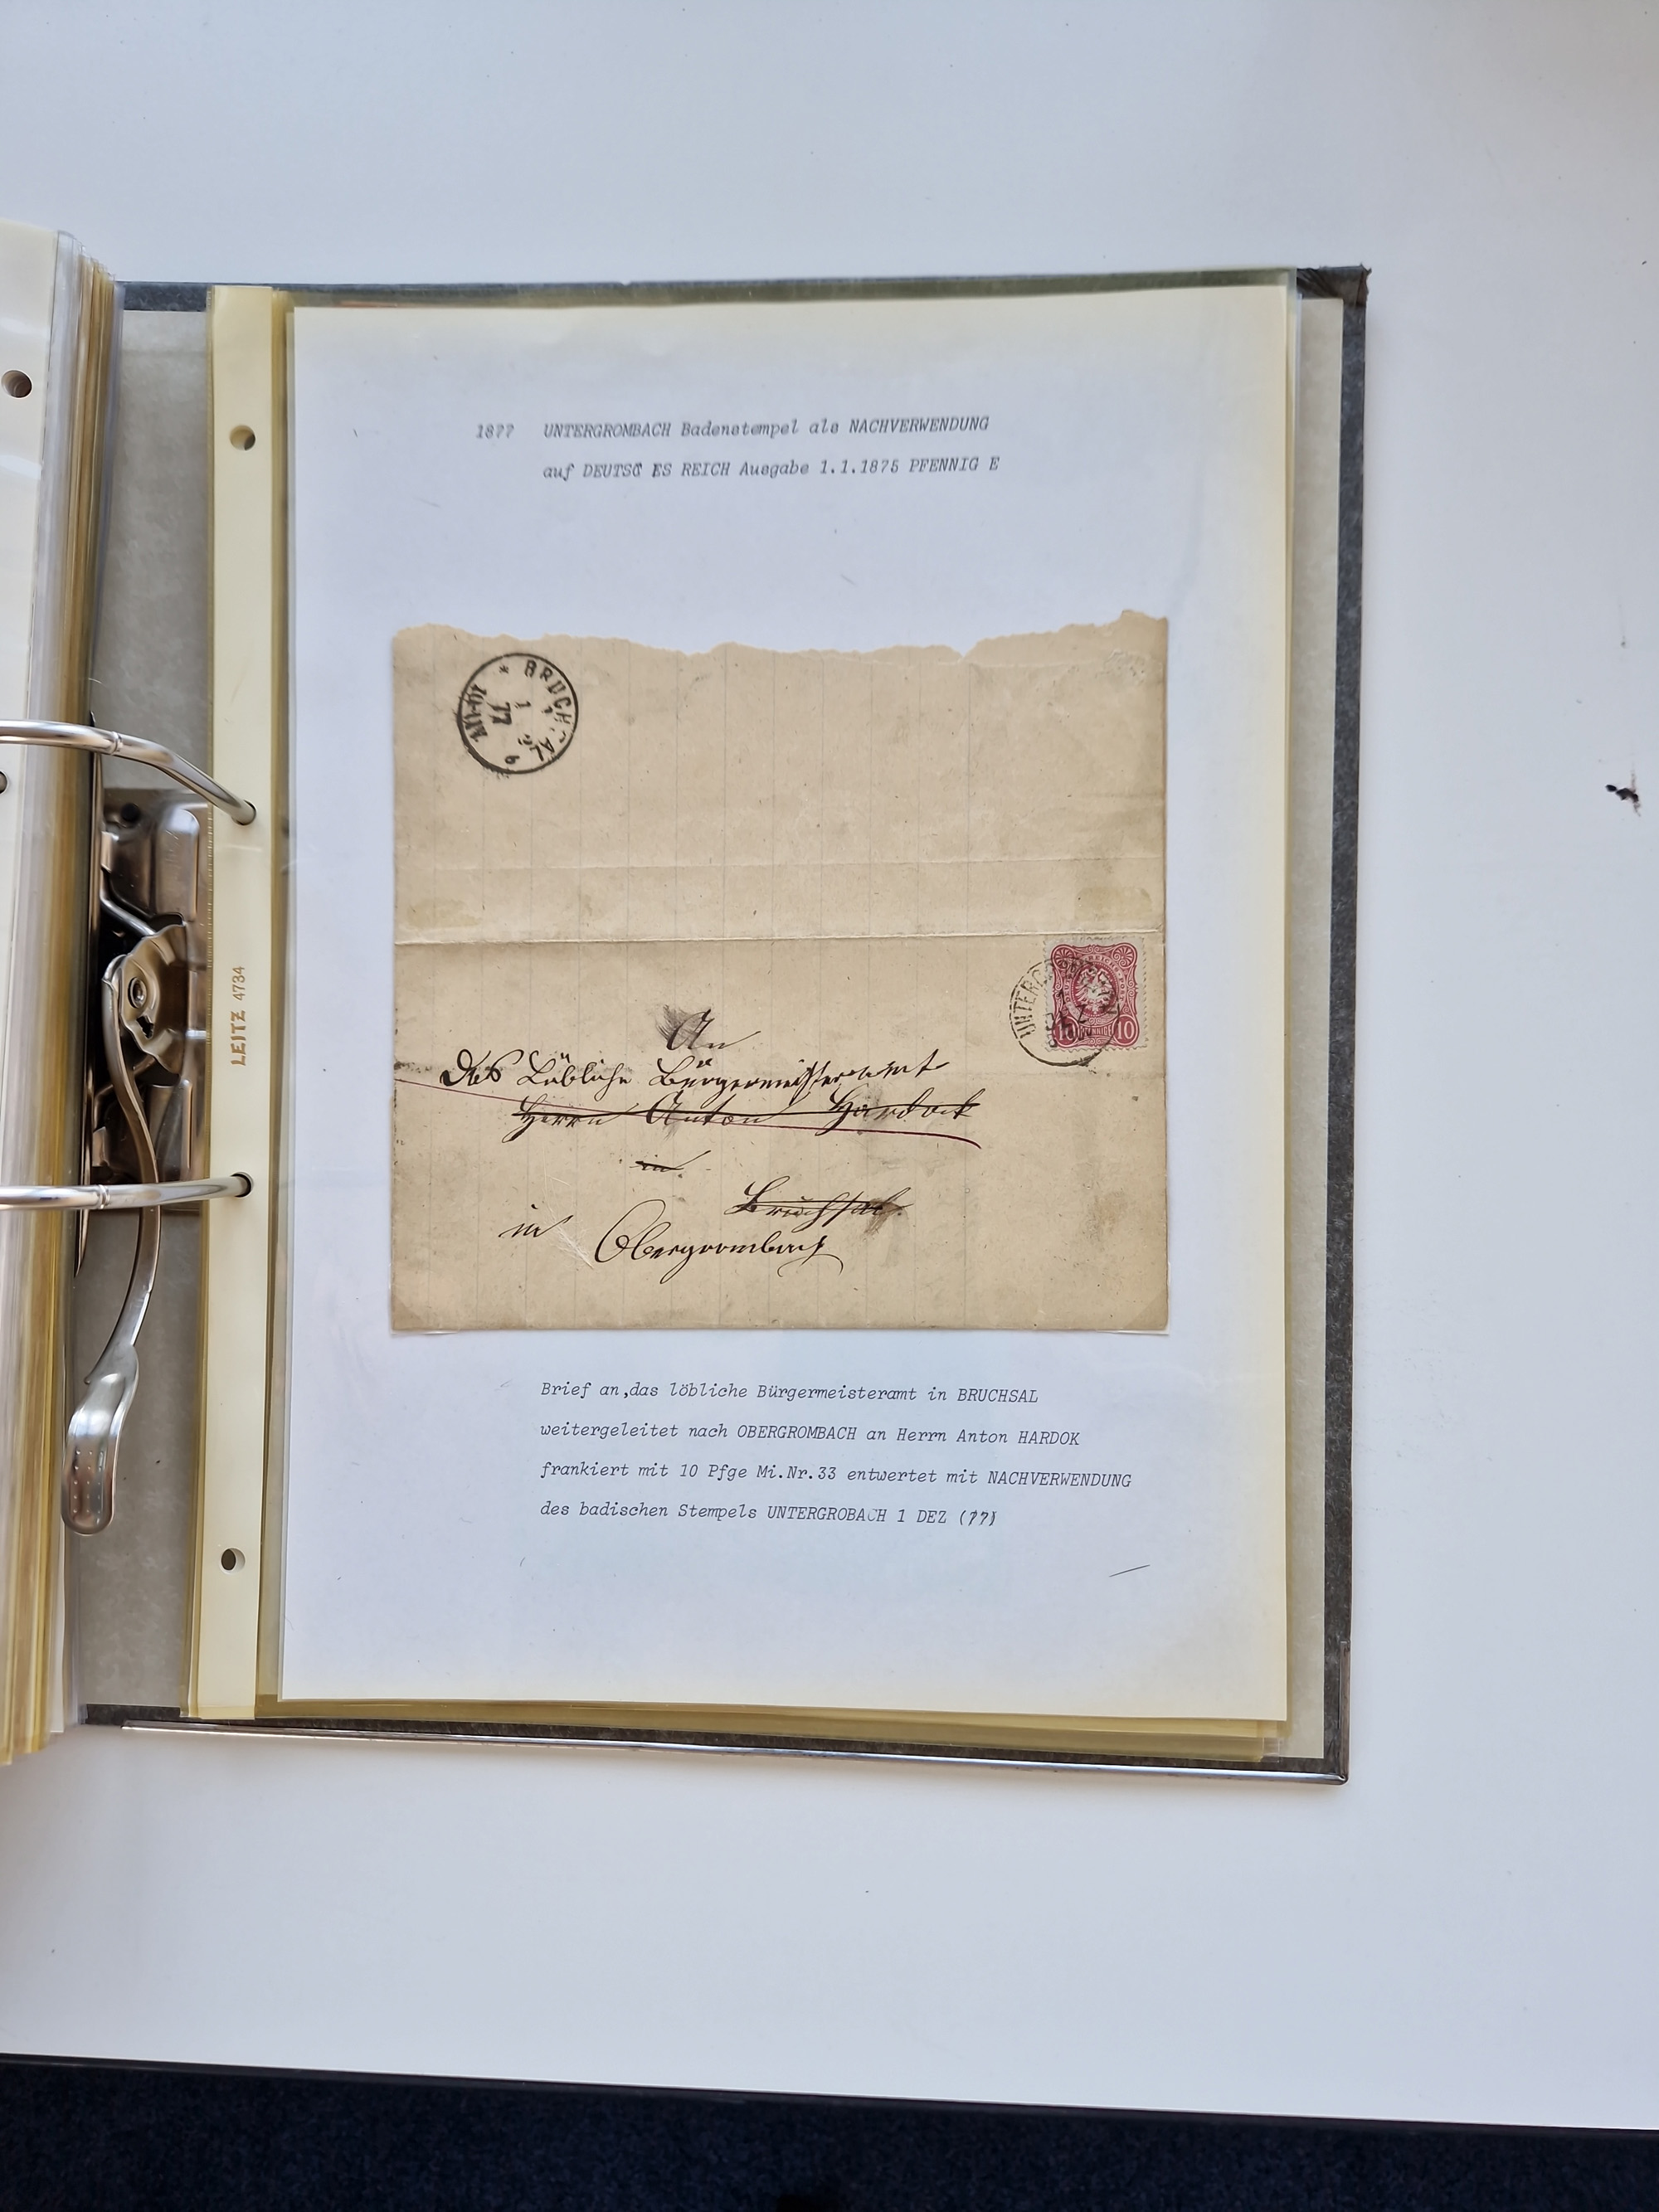 18?? UNTERGROMBACH Badenstempel als NACHVERWENDUNG
auf DEUTSC ES REICH Ausgabe 1.1.1875 PFENNIG E
* BRUCHSAL
1
77
10-11V
UNTERGROMBACH
10 PFENNIGE 10
An
Das Löbliche Bürgermeisteramt
Herrn Anton Hardock
in
Bruchsal.
in Obergrombach
LEITZ 4734
Brief an,das löbliche Bürgermeisteramt in BRUCHSAL
weitergeleitet nach OBERGROMBACH an Herrn Anton HARDOK
frankiert mit 10 Pfge Mi.Nr.33 entwertet mit NACHVERWENDUNG
des badischen Stempels UNTERGROBACH 1 DEZ (77)